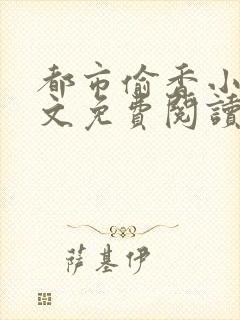 都市偷香小
文免費閱讀
萨基伊